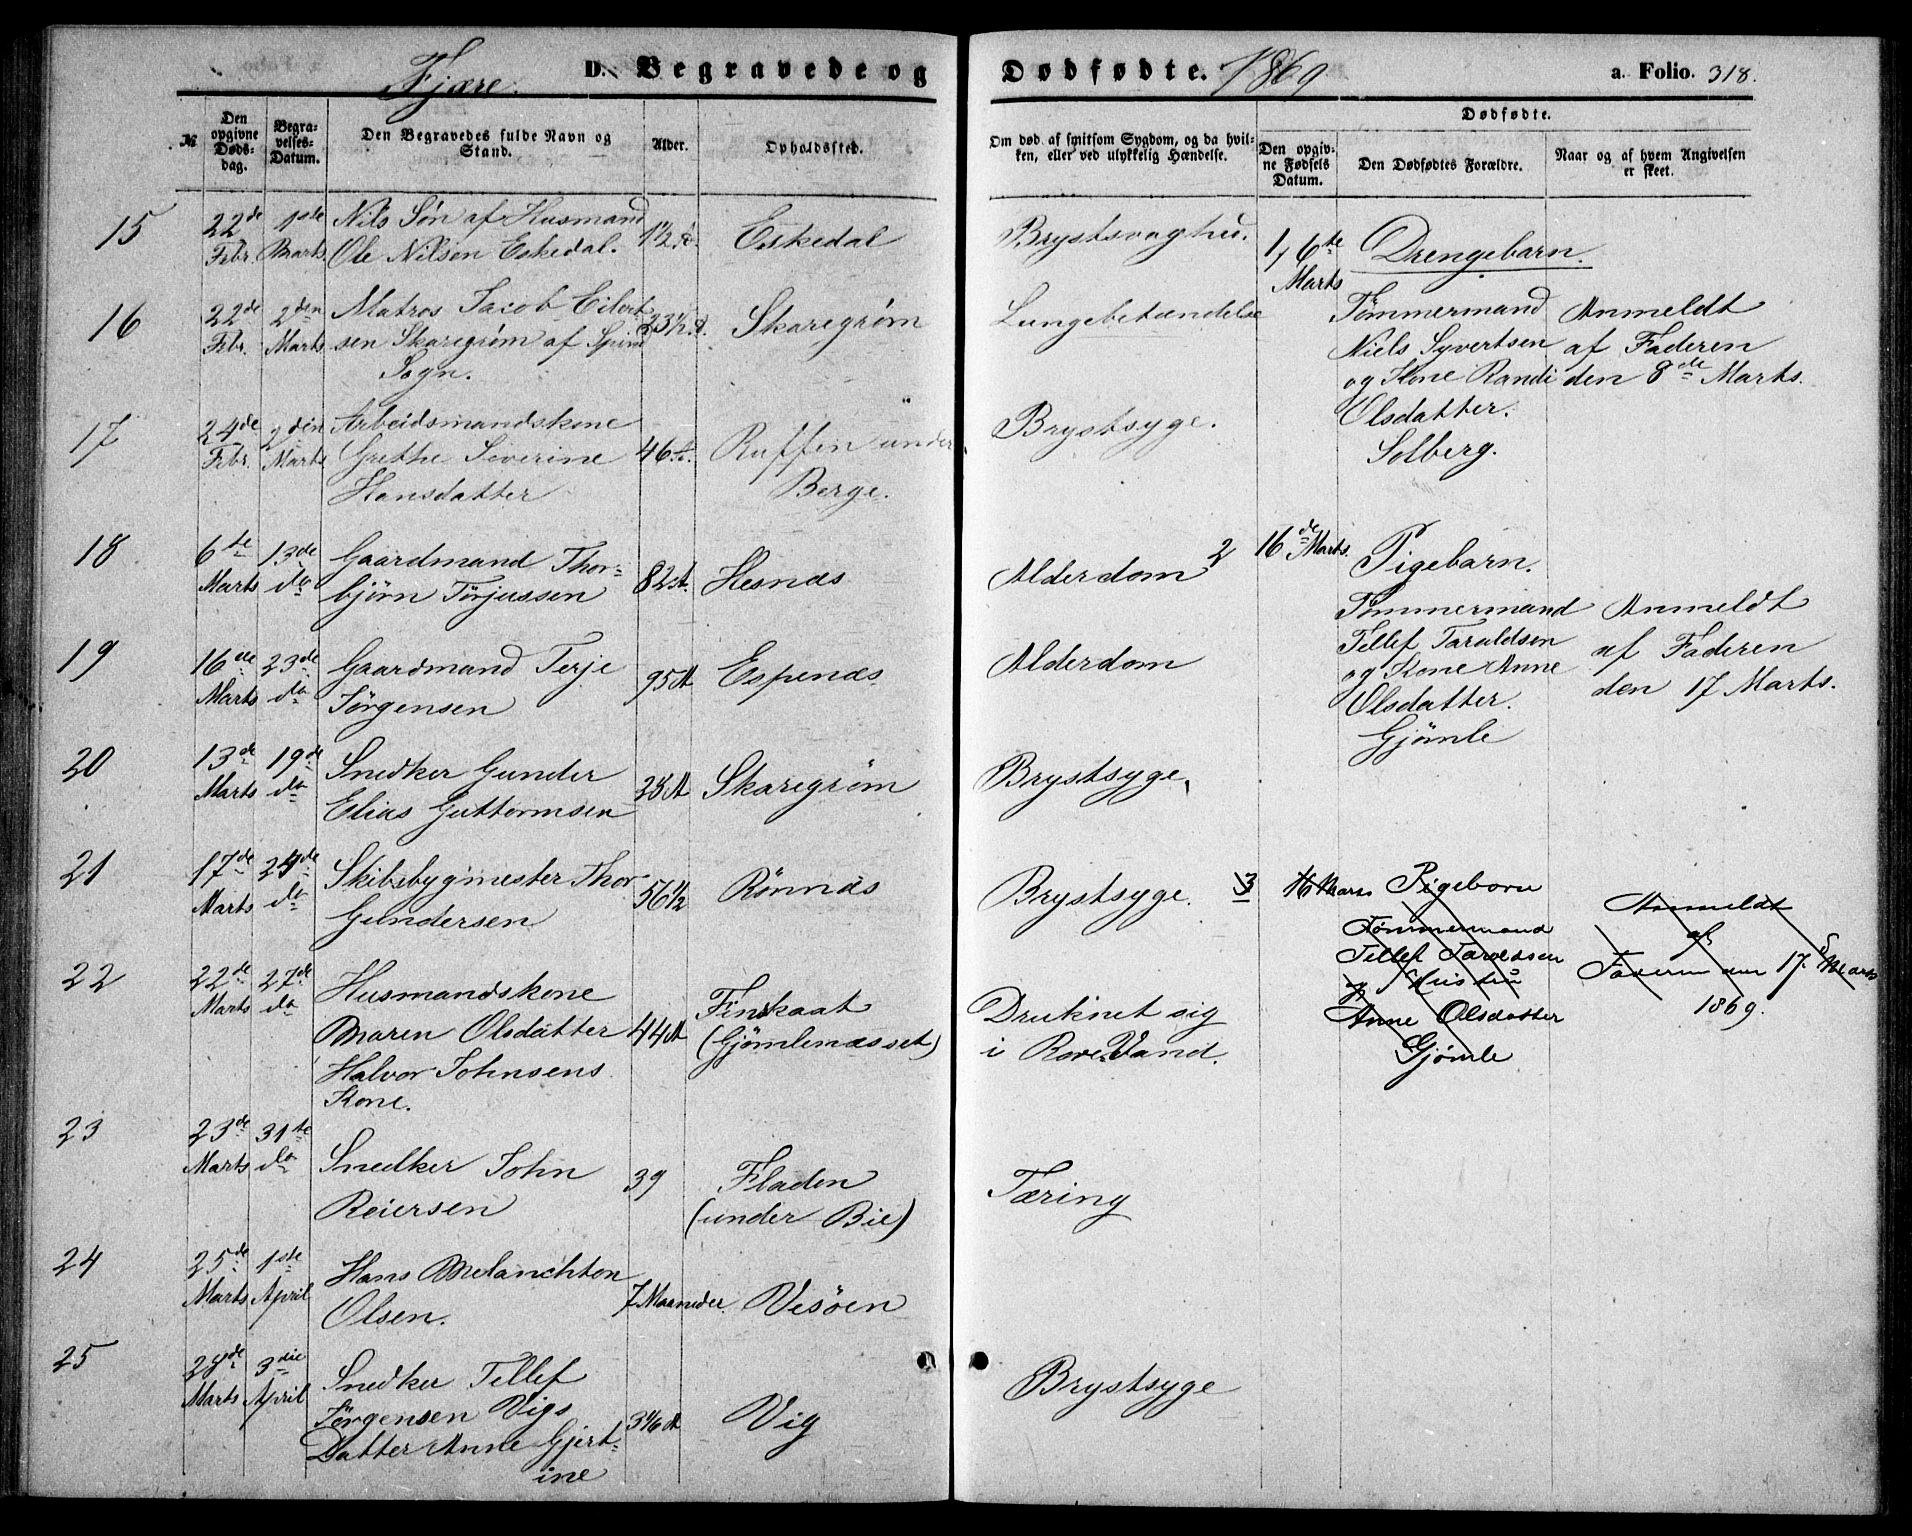 Fjære.
D. Begravede og
Dødfødte.
1869
a. Folio. 318.
№
Den opgivne Døds-dag.
Begra-velses-Datum.
Den Begravedes fulde Navn og Stand.
Alder.
Opholdssted.
Om død af smitsom Sygdom, og da hvil-ken, eller ved ulykkelig Hændelse.
Dødfødte.
Den opgiv-ne Fødsels Datum.
Den Dødfødtes Forældre.
Naar og af hvem Angivelsen er skeet.
15
22de Febr.
1ste Marts
Nils Søn af Husmand
Ole Nilsen Eskedal.
1½
Eskedal
16
22de Febr.
2den Marts
Matros Jacob Eilert
sen Skaregrøm af
Sogn.
Skaregrøm
Lungebetændelse
17
24de Febr.
2den Marts
Arbeidsmandskone
Grethe Severine
Hansdatter
46
Ruffen under
Berge.
Brystsyge.
18
6te Marts
13de do
Gaardmand Thor-
bjørn Torjussen
82 A.
Hesnæs
Alderdom
19
16de Marts
23de do
Gaardmand Terje
Jørgensen
95 A
Espenæs
Alderdom
20
13de Marts
19de do
Snedker Gunder
Elias Guttormsen
Skaregrøm
Brystsyge.
21
17de Marts
24de do
Skibsbygmester Thor
Gundersen
56½
Rønnæs
Brystsyge.
22
22de Marts
27de do
Husmandskone
Maren Olsdatter
Halvor Johnsens
Kone.
44 A
Finskaat
(Gjømlenæsset)
Druknet sig
i Rore Vand.
23
23de Marts
31te do
Snedker John
Reiersen
39
Fladen
(under Bie)
Tæring
24
25de Marts
1ste April
Hans Melanchton
Olsen.
7 Maaneder.
Vesøen
25
28de Marts
3die April
Snedker Tellef
Jørgensen Vigs
Datter Anne Gjert-
ine
Vig
Brystsyge
1,
6te Marts
Drengebarn.
Tømmermand
Niels Syvertsen
og Kone Randi
Olsdatter.
Solberg.
Anmeldt
af Faderen
den 8de Marts.
2
16de Marts.
Pigebarn.
Tømmermand
Tellef Taraldsen
og Kone Anne
Olsdatter.
Gjømle
Anmeldt
af Faderen
den 17 Marts.
3
16 Marts
Pigebarn
Tømmermand
Tellef Taraldsen
og Hustru
Anne Olsdatter
Gjømle
Anmeldt
af
Faderen den 17. Marts
1869.